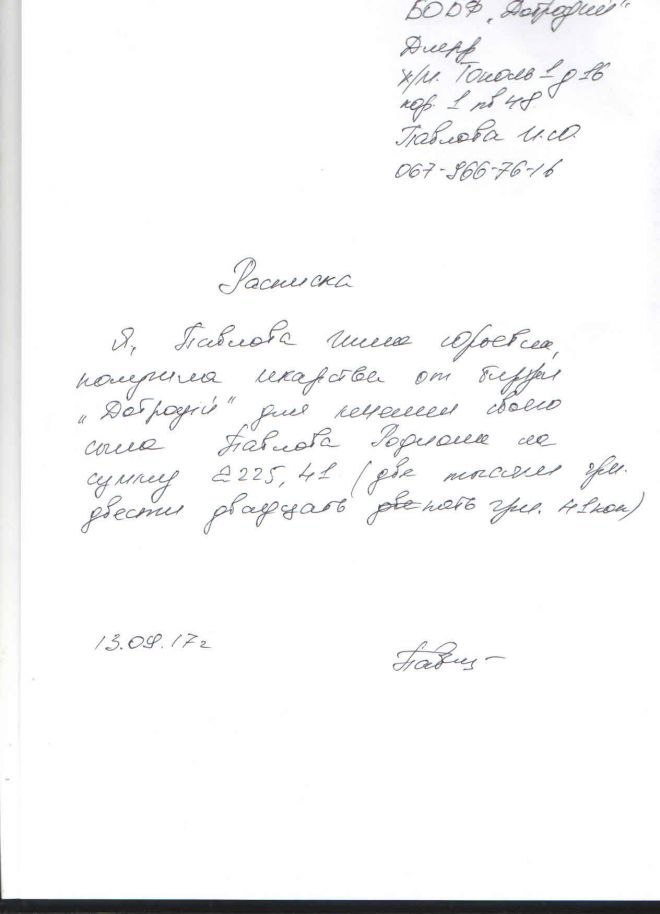 БОДФ „Добродий"
Днепр
ж/м. Тополь 1 д 16
кор. 1 кв 48
Павлова И.Ю.
067-966-76-16
Расписка
Я, Павлова Инна Юрьевна,
получила лекарства от
„Добродій" для лечения своего
сына Павлова Родиона на
сумму 2225,41 (две тысячи грн.
двести двадцать пять грн. 41 коп)
13.09.17г